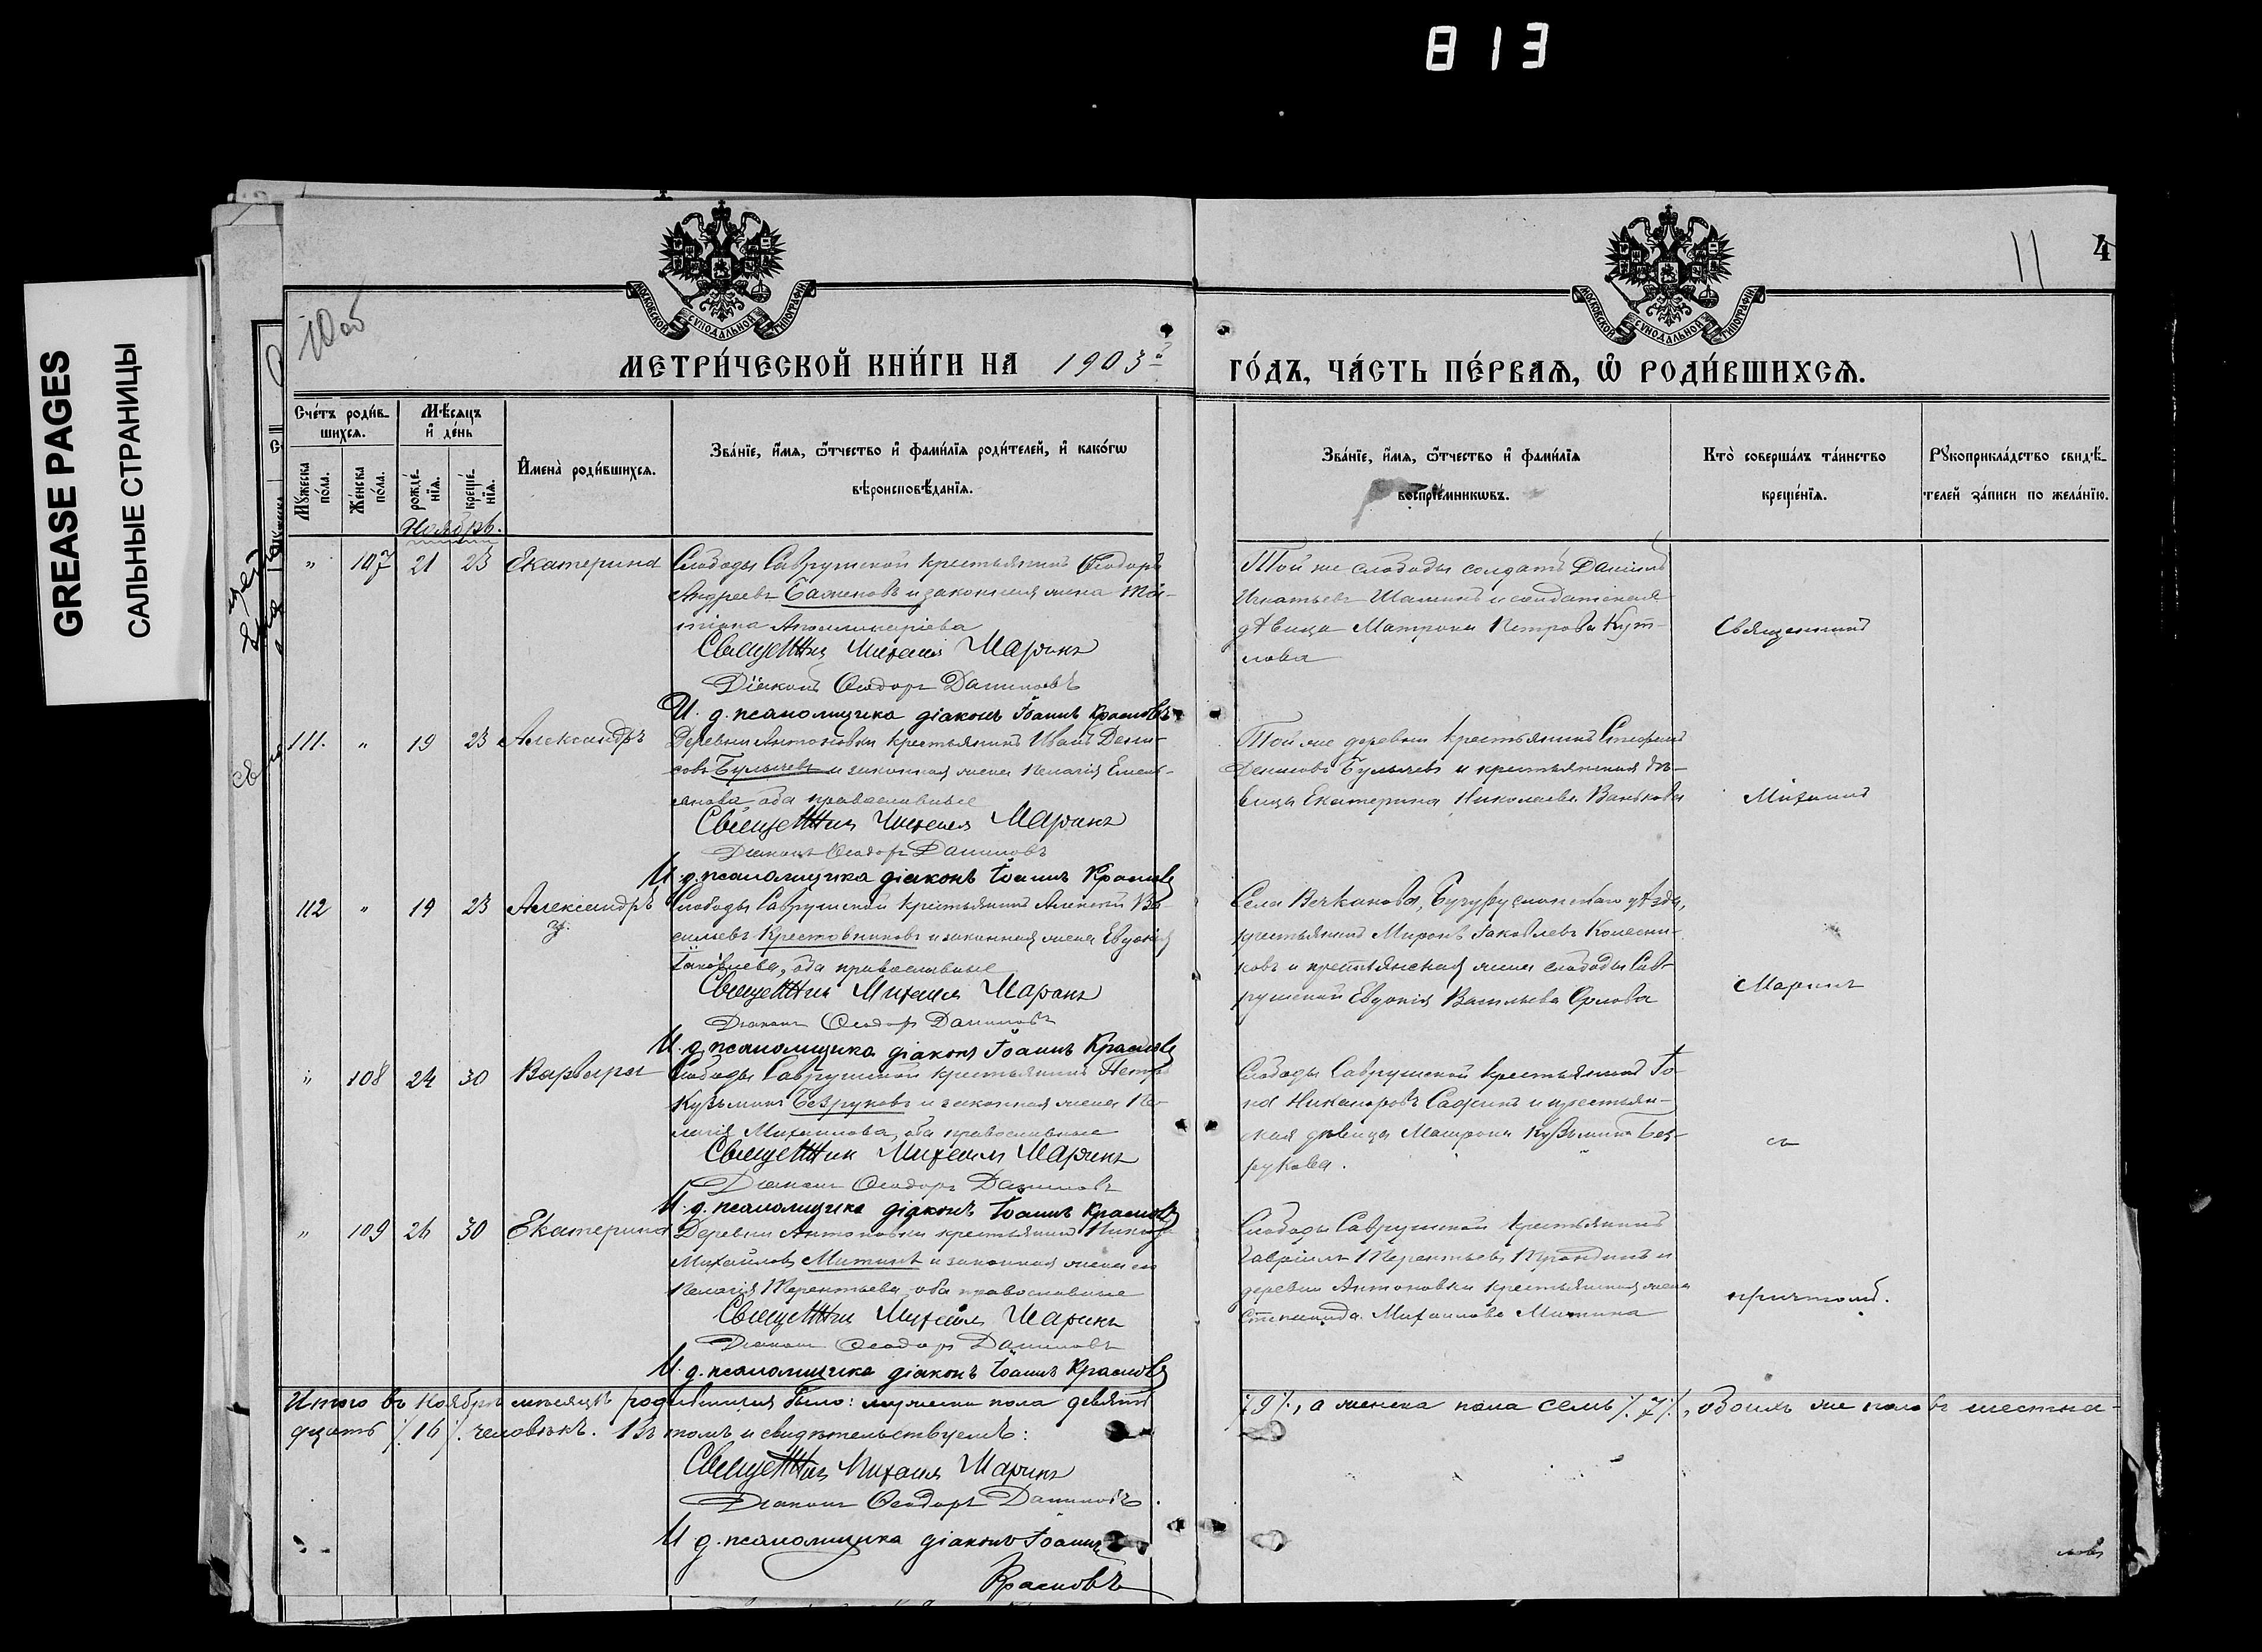 813
GREASE PAGES
САЛЬНЫЕ СТРАНИЦЫ
10 об
11
4
МОСКОВСКОЙ СѴНОДАЛЬНОЙ ТИПОГРАФІИ
МОСКОВСКОЙ СѴНОДАЛЬНОЙ ТИПОГРАФІИ
МЕТРИ́ЧЕСКОЙ КНИ́ГИ НА 1903й
ГО́ДЪ, ЧА́СТЬ ПЕ́РВАѦ, Ѽ РОДИ́ВШИХСѦ.
Сче́тъ роди́в-
шихсѧ.
Мꙋ́жеска по́ла.
Же́нска по́ла.
Мѣ́сѧцъ
и҆ де́нь
рожде́-
нїѧ.
креще́-
нїѧ.
И҆мена̀ роди́вшихсѧ.
Зва́нїе, и҆́мѧ, ѻ҆́тчество и҆ фами́лїѧ роди́телей, и҆ како́гѡ
вѣроисповѣ́данїѧ.
Зва́нїе, и҆́мѧ, ѻ҆́тчество и҆ фами́лїѧ
воспрїе́мникѡвъ.
Кто̀ соверша́лъ та́инство
креще́нїѧ.
Рꙋкоприкла́дство свидѣ́-
телей за́писи по жела́нїю.
Ноябрь.
„ 107 21 23 Екатерина
Слободы Саврушской крестьянинъ Ѳеодоръ
Андреевъ Баженовъ и законная жена Та-
тіана Аполлинаріева
Священник Михаилъ Маринъ
Діаконъ Ѳеодоръ Даниловъ
И. д. псаломщика діаконъ Іоаннъ Красновъ
Той же слободы солдатъ Даніилъ
Игнатьевъ Шалинъ и солдатская
дѣвица Матрона Петрова Кут-
лова
Священникъ
111. „ 19 23 Александръ
Деревни Антоновки крестьянинъ Иванъ Дени-
совъ Булычевъ и законная жена Пелагія Емель-
янова, оба православные
Священник Михаилъ Маринъ
Діаконъ Ѳеодоръ Даниловъ
И. д. псаломщика діаконъ Іоаннъ Красновъ
Той же деревни крестьянинъ Стефанъ
Денисовъ Булычевъ и крестьянская дѣ-
вица Екатерина Николаева Ванькова
Михаилъ
112 „ 19 23 Александръ
Слободы Саврушской крестьянинъ Алексій Ва-
сильевъ Крестовниковъ и законная жена Евдокія
Іаковлева, оба православные
Священник Михаилъ Маринъ
Діаконъ Ѳеодоръ Даниловъ
И. д. псаломщика діаконъ Іоаннъ Красновъ
Села Вечканова, Бугурусланскаго уѣзда,
крестьянинъ Миронъ Іаковлевъ Колесни-
ковъ и крестьянская жена слободы Сав-
рушской Евдокія Васильева Орлова
Маринъ
„ 108 24 30 Варвара
Слободы Саврушской крестьянинъ Петръ
Кузьминъ Безруковъ и законная жена Пе-
лагія Михаилова, оба православные
Священник Михаилъ Маринъ
Діаконъ Ѳеодоръ Даниловъ
И. д. псаломщика діаконъ Іоаннъ Красновъ
Слободы Саврушской крестьянинъ Іо-
на Никаноровъ Сафинъ и крестьян-
ская дѣвица Матрона Кузьмина Без-
рукова.
съ
„ 109 26 30 Екатерина
Деревни Антоновки крестьянинъ Никита
Михайловъ Митинъ и законная жена его
Пелагія Терентьева, оба православные
Священник Михаилъ Маринъ
Діаконъ Ѳеодоръ Даниловъ
И. д. псаломщика діаконъ Іоаннъ Красновъ
Слободы Саврушской крестьянинъ
Гавріилъ Терентьевъ и
деревни Антоновки крестьянская жена
Степанида Михаилова Митина
причтомъ.
Итого въ Ноябрѣ мѣсяцѣ родившихся было: мужеска пола девять ⁒ 9 ⁒, а женска пола семь ⁒ 7 ⁒, обоихъ же половъ шестна-
дцать ⁒ 16 ⁒ человѣкъ. Въ томъ и свидѣтельствуемъ:
Священник Михаилъ Маринъ
Діаконъ Ѳеодоръ Даниловъ.
И. д. псаломщика діаконъ Іоаннъ
Красновъ